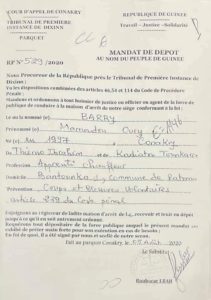 COUR D'APPEL DE CONAKRY
TRIBUNAL DE PREMIERE
INSTANCE DE DIXINN
PARQUET
RP N° 529/2020
REPUBLIQUE DE GUINEE
Travail - Justice - Solidarité
MANDAT DE DEPOT
AU NOM DU PEUPLE DE GUINEE
Nous Procureur de la République près le Tribunal de Première Instance de
Dixinn ;
Vu les dispositions combinées des articles et 114 du Code de Procédure
Pénale ;
Mandons et ordonnons à tout huissier de justice ou officier ou agent de la force
publique de conduire à la maison d'arrêt de notre siège conformément à la loi :
Le ou la nommé (e) BARRY
Mamadou Oury
Né (e) en 1997 à Conakry
de Thierno Ibrahima et de Kadiatou
Profession Apprenti Chauffeur
Domicile Bantounka, Commune de Ratoma
Prévention Coups et Blessures Volontaires
article 239 du Code pénal
Enjoignons au régisseur de ladite maison d'arrêt de le recevoir et tenir en dépôt
jusqu'à ce qu'il en soit autrement ordonné.
Requérons tout dépositaire de la force publique auquel le présent mandat sera
exhibé de prêter main forte pour son exécution en cas de besoin ;
En foi de quoi, il a été signé par nous et scellé de notre sceau.
Fait au parquet Conakry, le Août 2020
Le Substitut
Boubacar